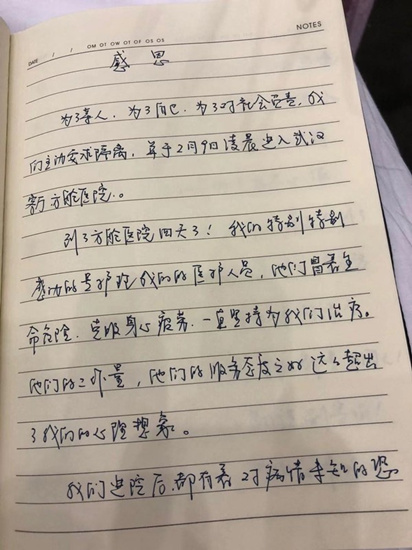 NOTES
DATE / /
感恩
为了家人、为了自己、为了对社会负责,我
们主动要求隔离,并于2月9日凌晨进入武汉
方舱医院。
到了方舱医院四天了!我们特别特别
感动的是护我们的医护人员,他们冒着生
命危险、克服身心疲劳、一直坚持为我们治疗。
他们的工作量,他们的服务态度之好这么超出
了我们的心理想象。
我们进院后,都有着对病情未知的恐